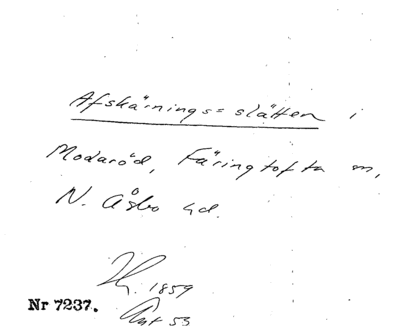 Afskärnings=slätten i
Modaröd, Färingtofta sn,
N. Åsbo hd.
1859
Nr 7237.
Ant 53